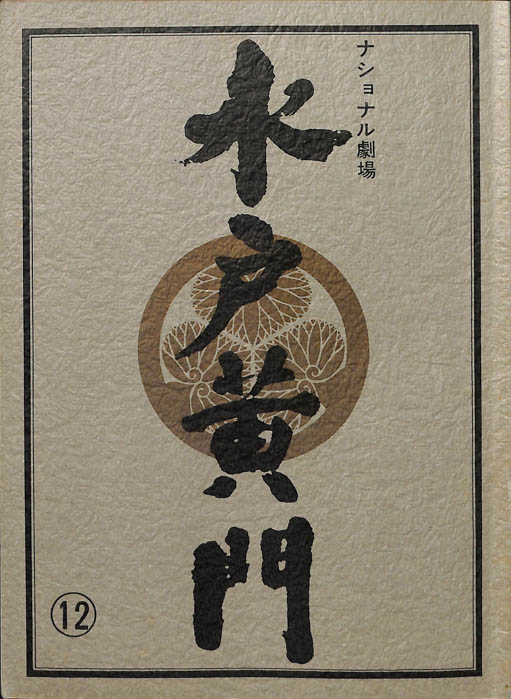 ナショナル劇場
水戸黄門
⑫